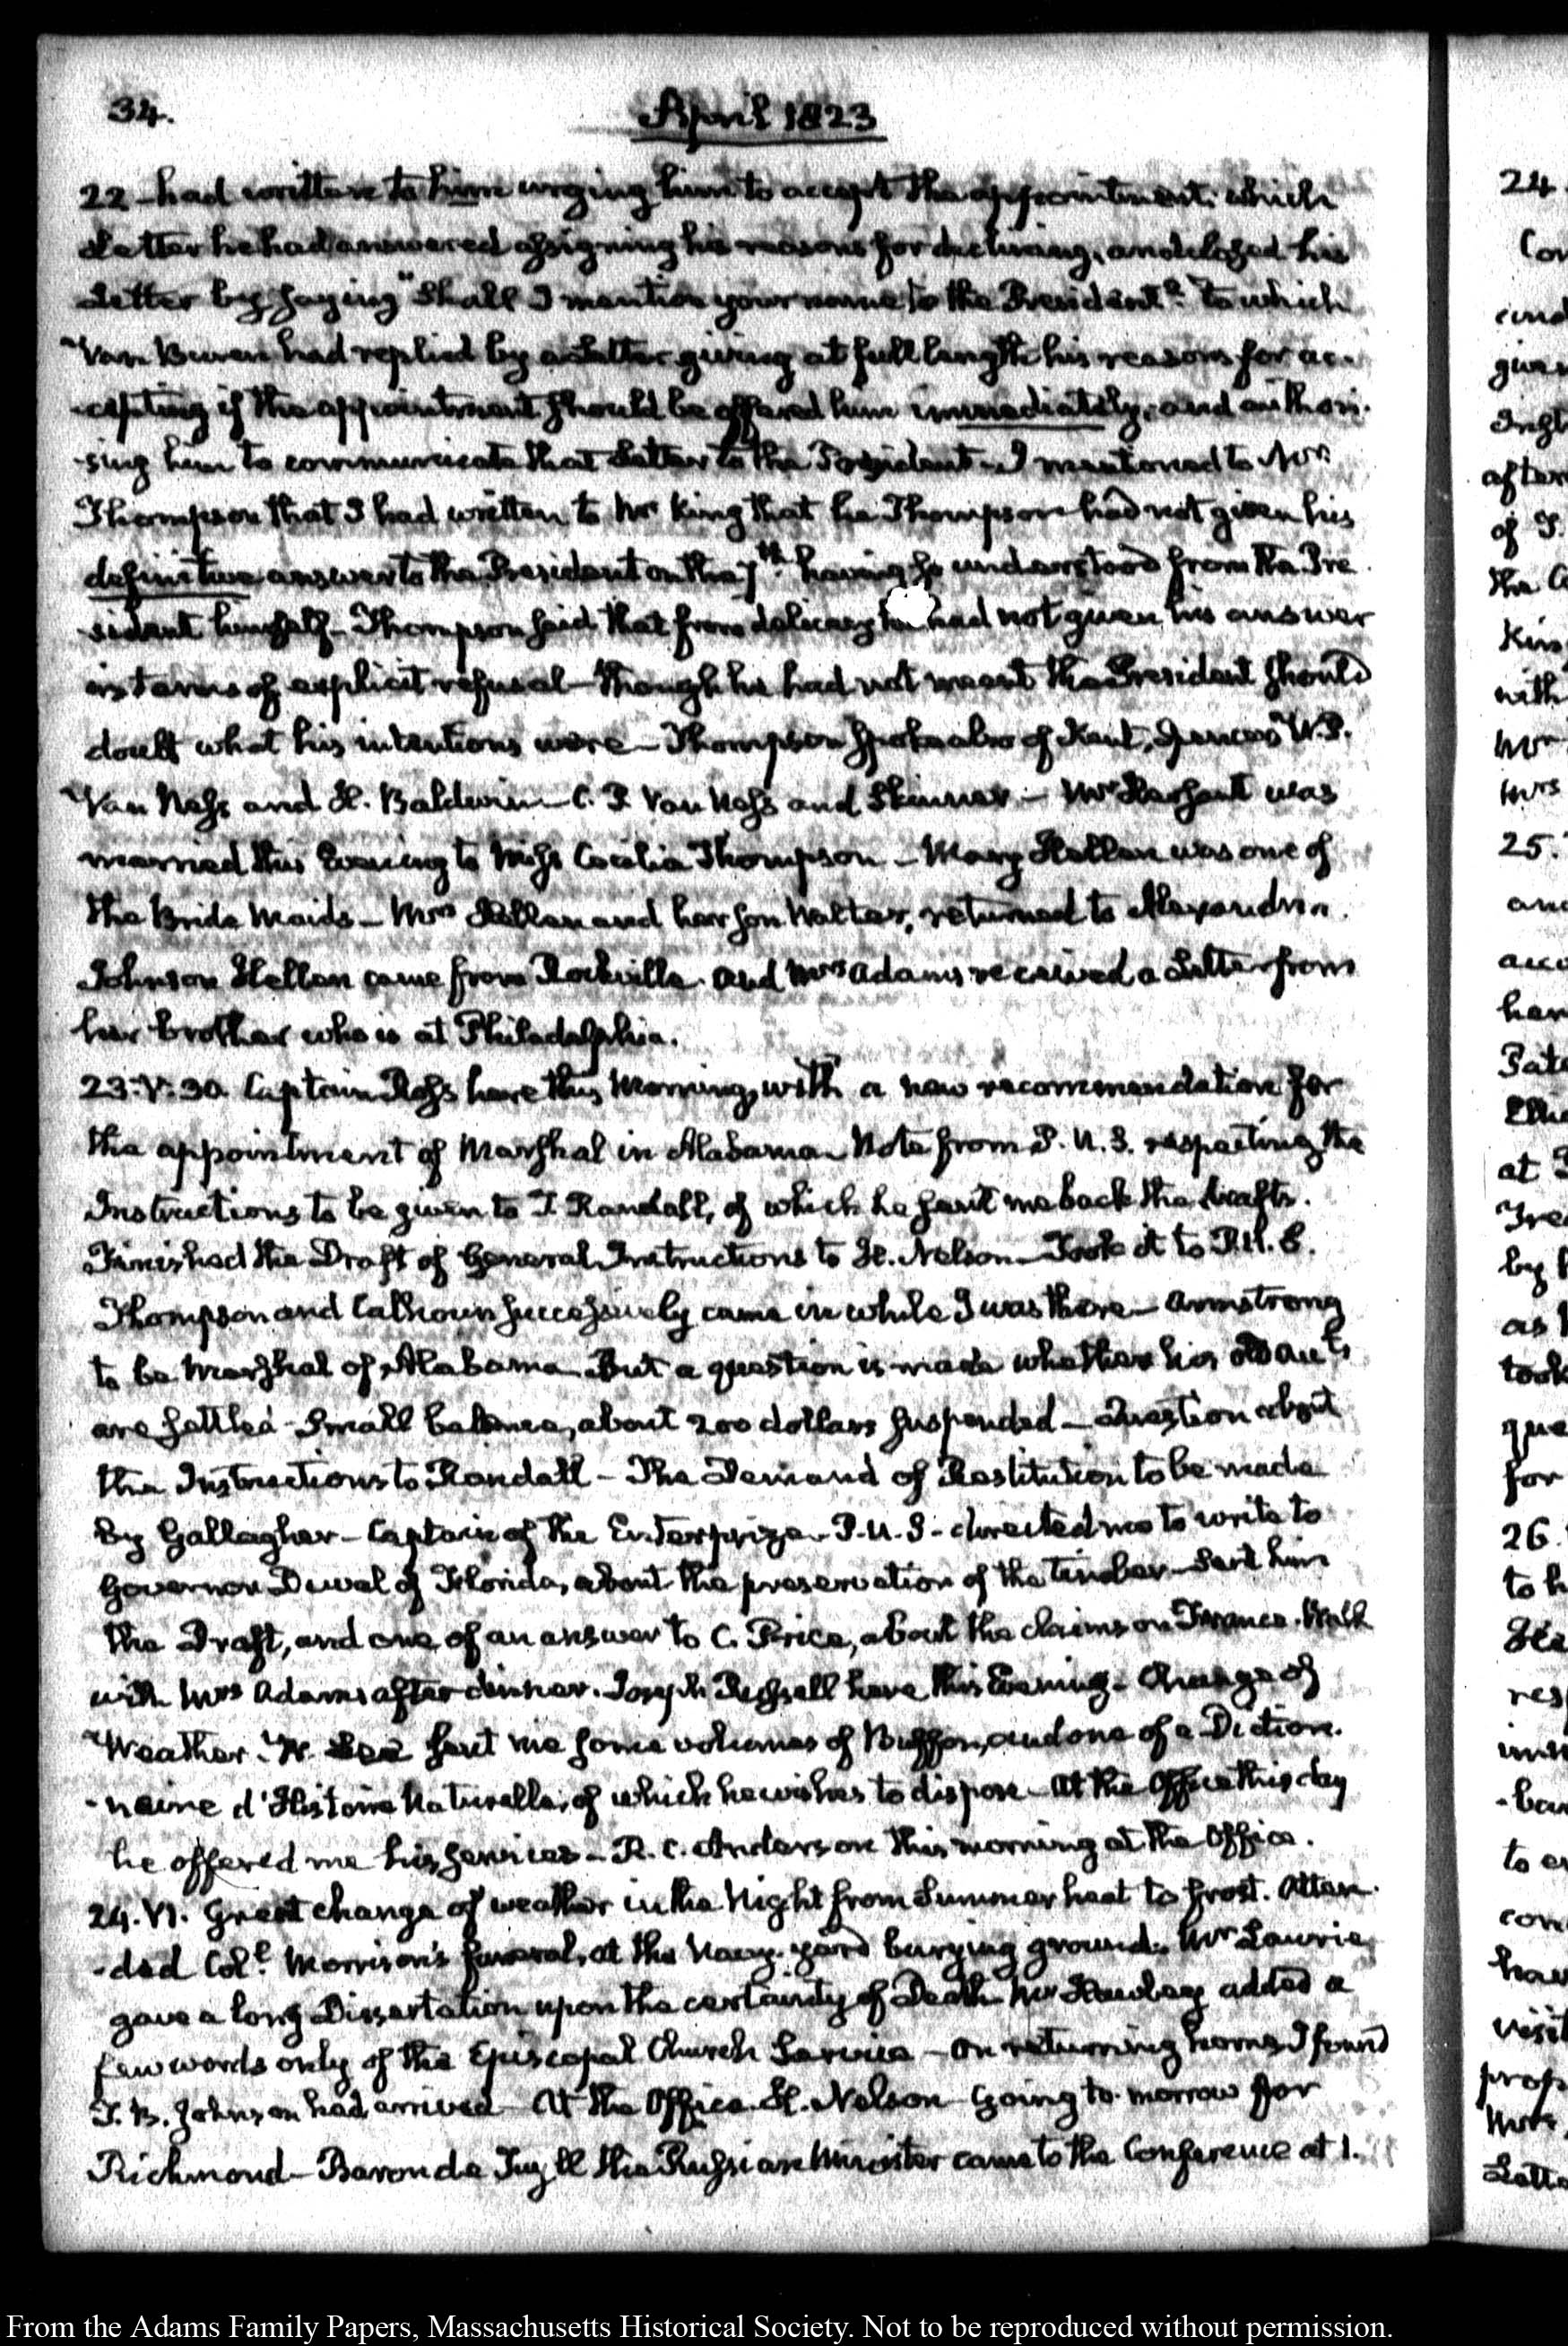 34.
April 1823
22 had written to him urging him to accept the appointment. which
Letter he had answered assigning his reasons for declining, and closed his
Letter by saying "Shall I mention your name to the President"? To which
Van Buren had replied by a Letter giving at full length his reasons for ac-
-cepting if the appointment should be offered him immediately, and authori-
-sing him to communicate that Letter to the President. I mentioned to Mr
Thompson that I had written to Mr King that he Thompson had not given his
definitive answer to the President on the 7th. having so understood from the Pre-
-sident himself. Thompson said that from delicacy he had not given his answer
in terms of explicit refusal — though he had not meant the President should
doubt what his intentions were — Thompson spoke also of Kent, Spencer, W. P.
Van Ness and H. Baldwin — C. P. Van Ness and Skinner. — Mr was
married this Evening to Miss Cecilia Thompson — Mary Hellen was one of
the Bride Maids — Mrs Hellen and her son Walter, returned to Alexandria.
Johnson Hellen came from Rockville. And Mrs Adams received a Letter from
her brother who is at Philadelphia.
23. V. 30. Captain Ross here this Morning, with a new recommendation for
the appointment of Marshal in Alabama. Note from P. U. S. respecting the
Instructions to be given to T. Randall, of which he sent me back the drafts.
Finished the Draft of General Instructions to H. Nelson. Took it to P. U. S.
Thompson and Calhoun successively came in while I was there — Armstrong
to be Marshal of Alabama. But a question is made whether his old acts
are settled — Small balance, about 200 dollars suspended — Question about
the Instructions to Randall — The Demand of Restitution to be made
by Gallagher — Captain of the Enterprize. P. U. S. directed me to write to
Governor Duval of Florida, about the preservation of the timber — Sent him
the Draft, and one of an answer to C. Price, about the claims on France. Walk
with Mrs Adams after dinner. Joseph Russell here this Evening — Change of
Weather. W. Lee sent me some volumes of Buffon, and one of a Diction-
-naire d'Histoire Naturelle, of which he wishes to dispose — At the Office this day
he offered me his services — R. C. Anderson this morning at the Office.
24. VI. Great change of weather in the Night from Summer heat to frost. Atten-
-ded Coll. Morrison's funeral, at the Navy-yard burying ground. Mr Lawrie
gave a long Dissertation upon the certainty of Death. Mr Hawley added a
few words only of the Episcopal Church Service — On returning home, I found
T. B. Johnson had arrived — At the Office H. Nelson — Going to-morrow for
Richmond — Baron de Tuyll the Russian Minister came to the Conference at 1.
24
25.
26.
From the Adams Family Papers, Massachusetts Historical Society. Not to be reproduced without permission.